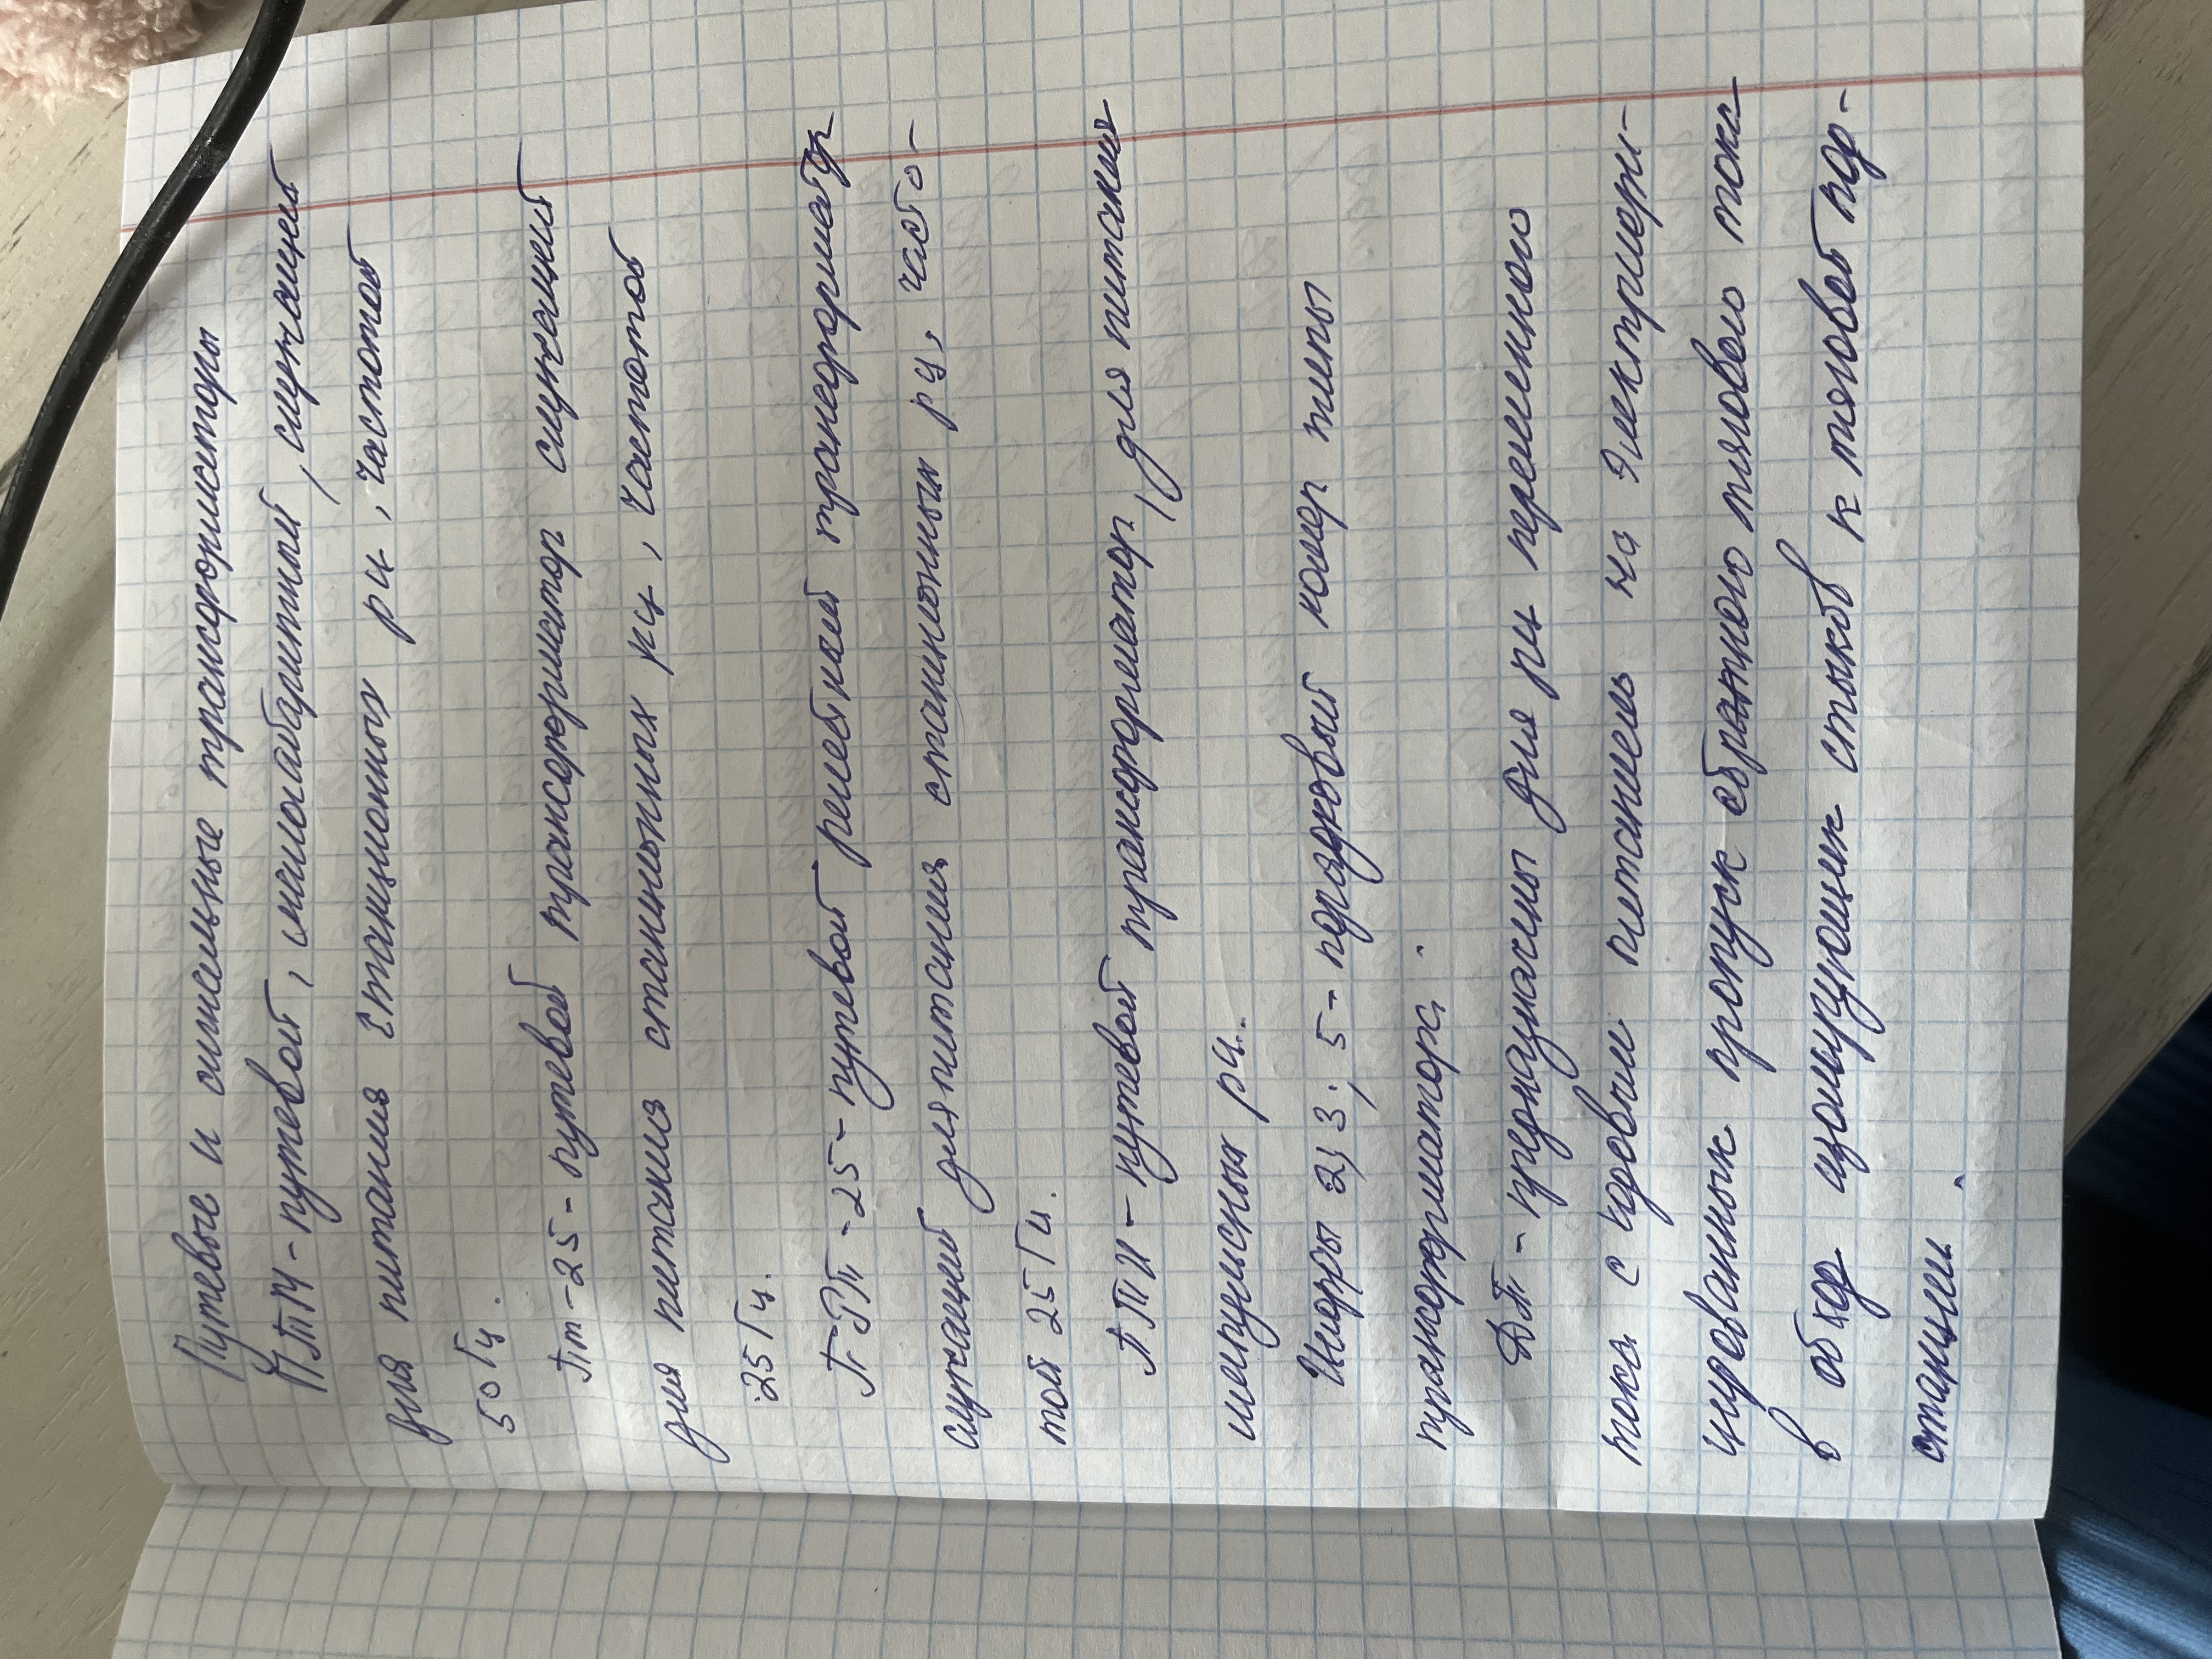 Путевые и сигнальные трансформаторы
ПТМ - путевой, малогабаритный, служащий
для питания станционных рц, частотой
50 Гц.
Пт - 25 - путевой трансформатор служащий
для питания станционных рц, частотой
25 Гц.
ПРТ - 25 - путевой релейный трансформатор
служащий для питания станционных рц, часто-
той 25 Гц.
ПТИ - путевой трансформатор, для питания
импульсных рц.
Цифры 2; 3; 5 - порядковый номер типы
трансформатора.
ДТ - предназначены для рц переменного
тока с кодовым питанием на электрифи-
цированных пропуск обратного тягового тока
в обход изолирующих стыков к тяговой под-
станции.